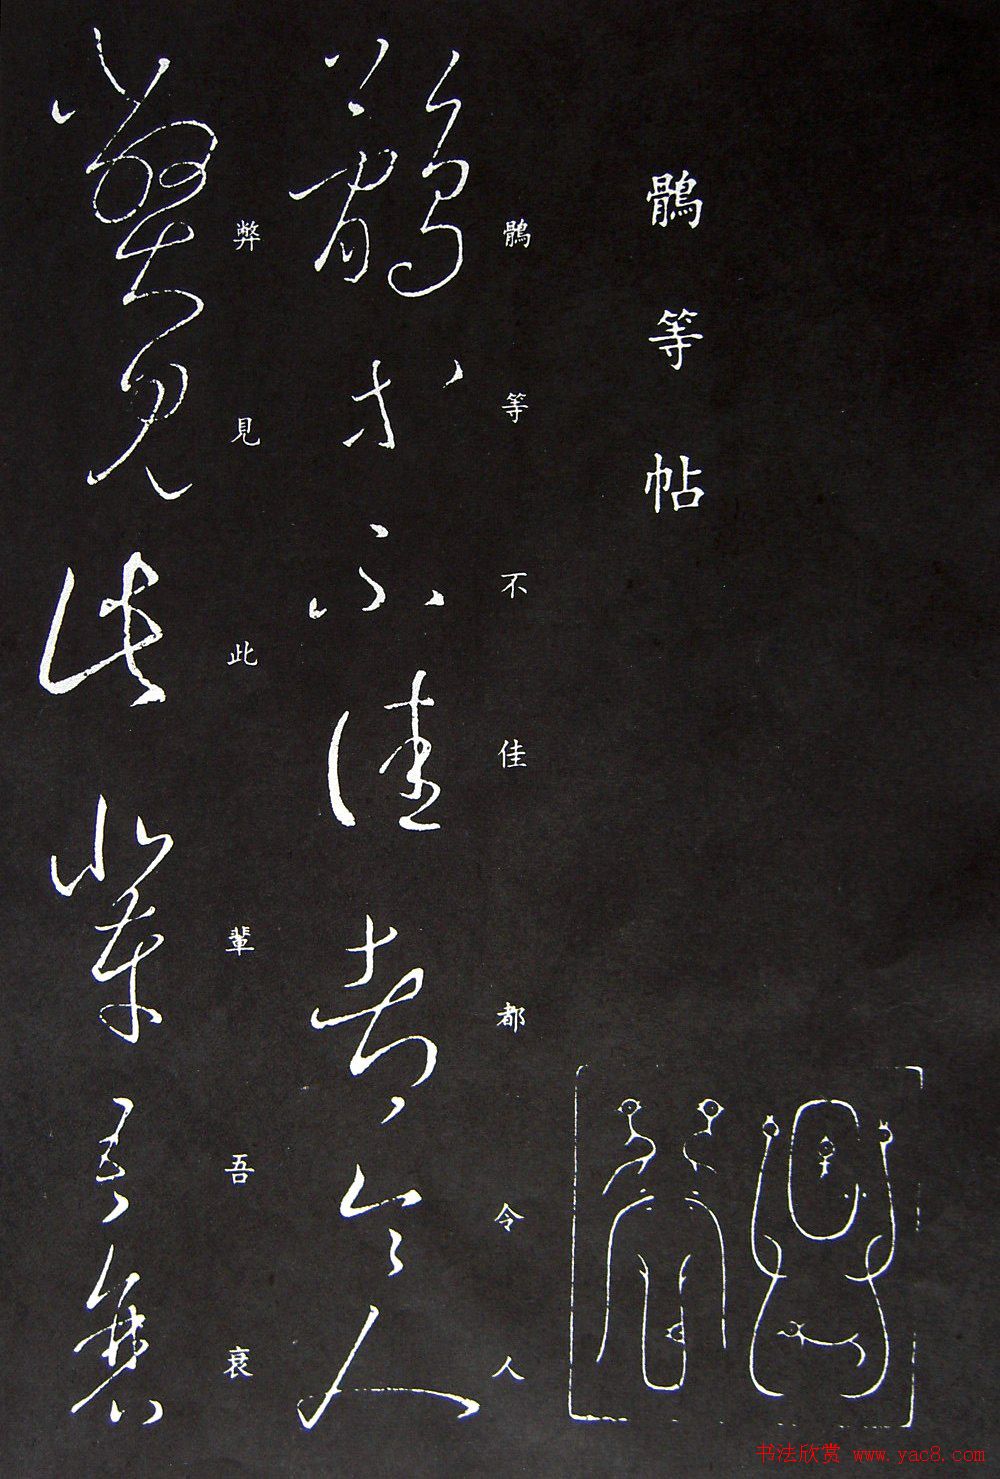 鶻等帖
鶻等不佳都令人
鶻等不佳都令人
弊見此輩吾衰
弊見此輩吾衰
书法欣赏 www.yac8.com